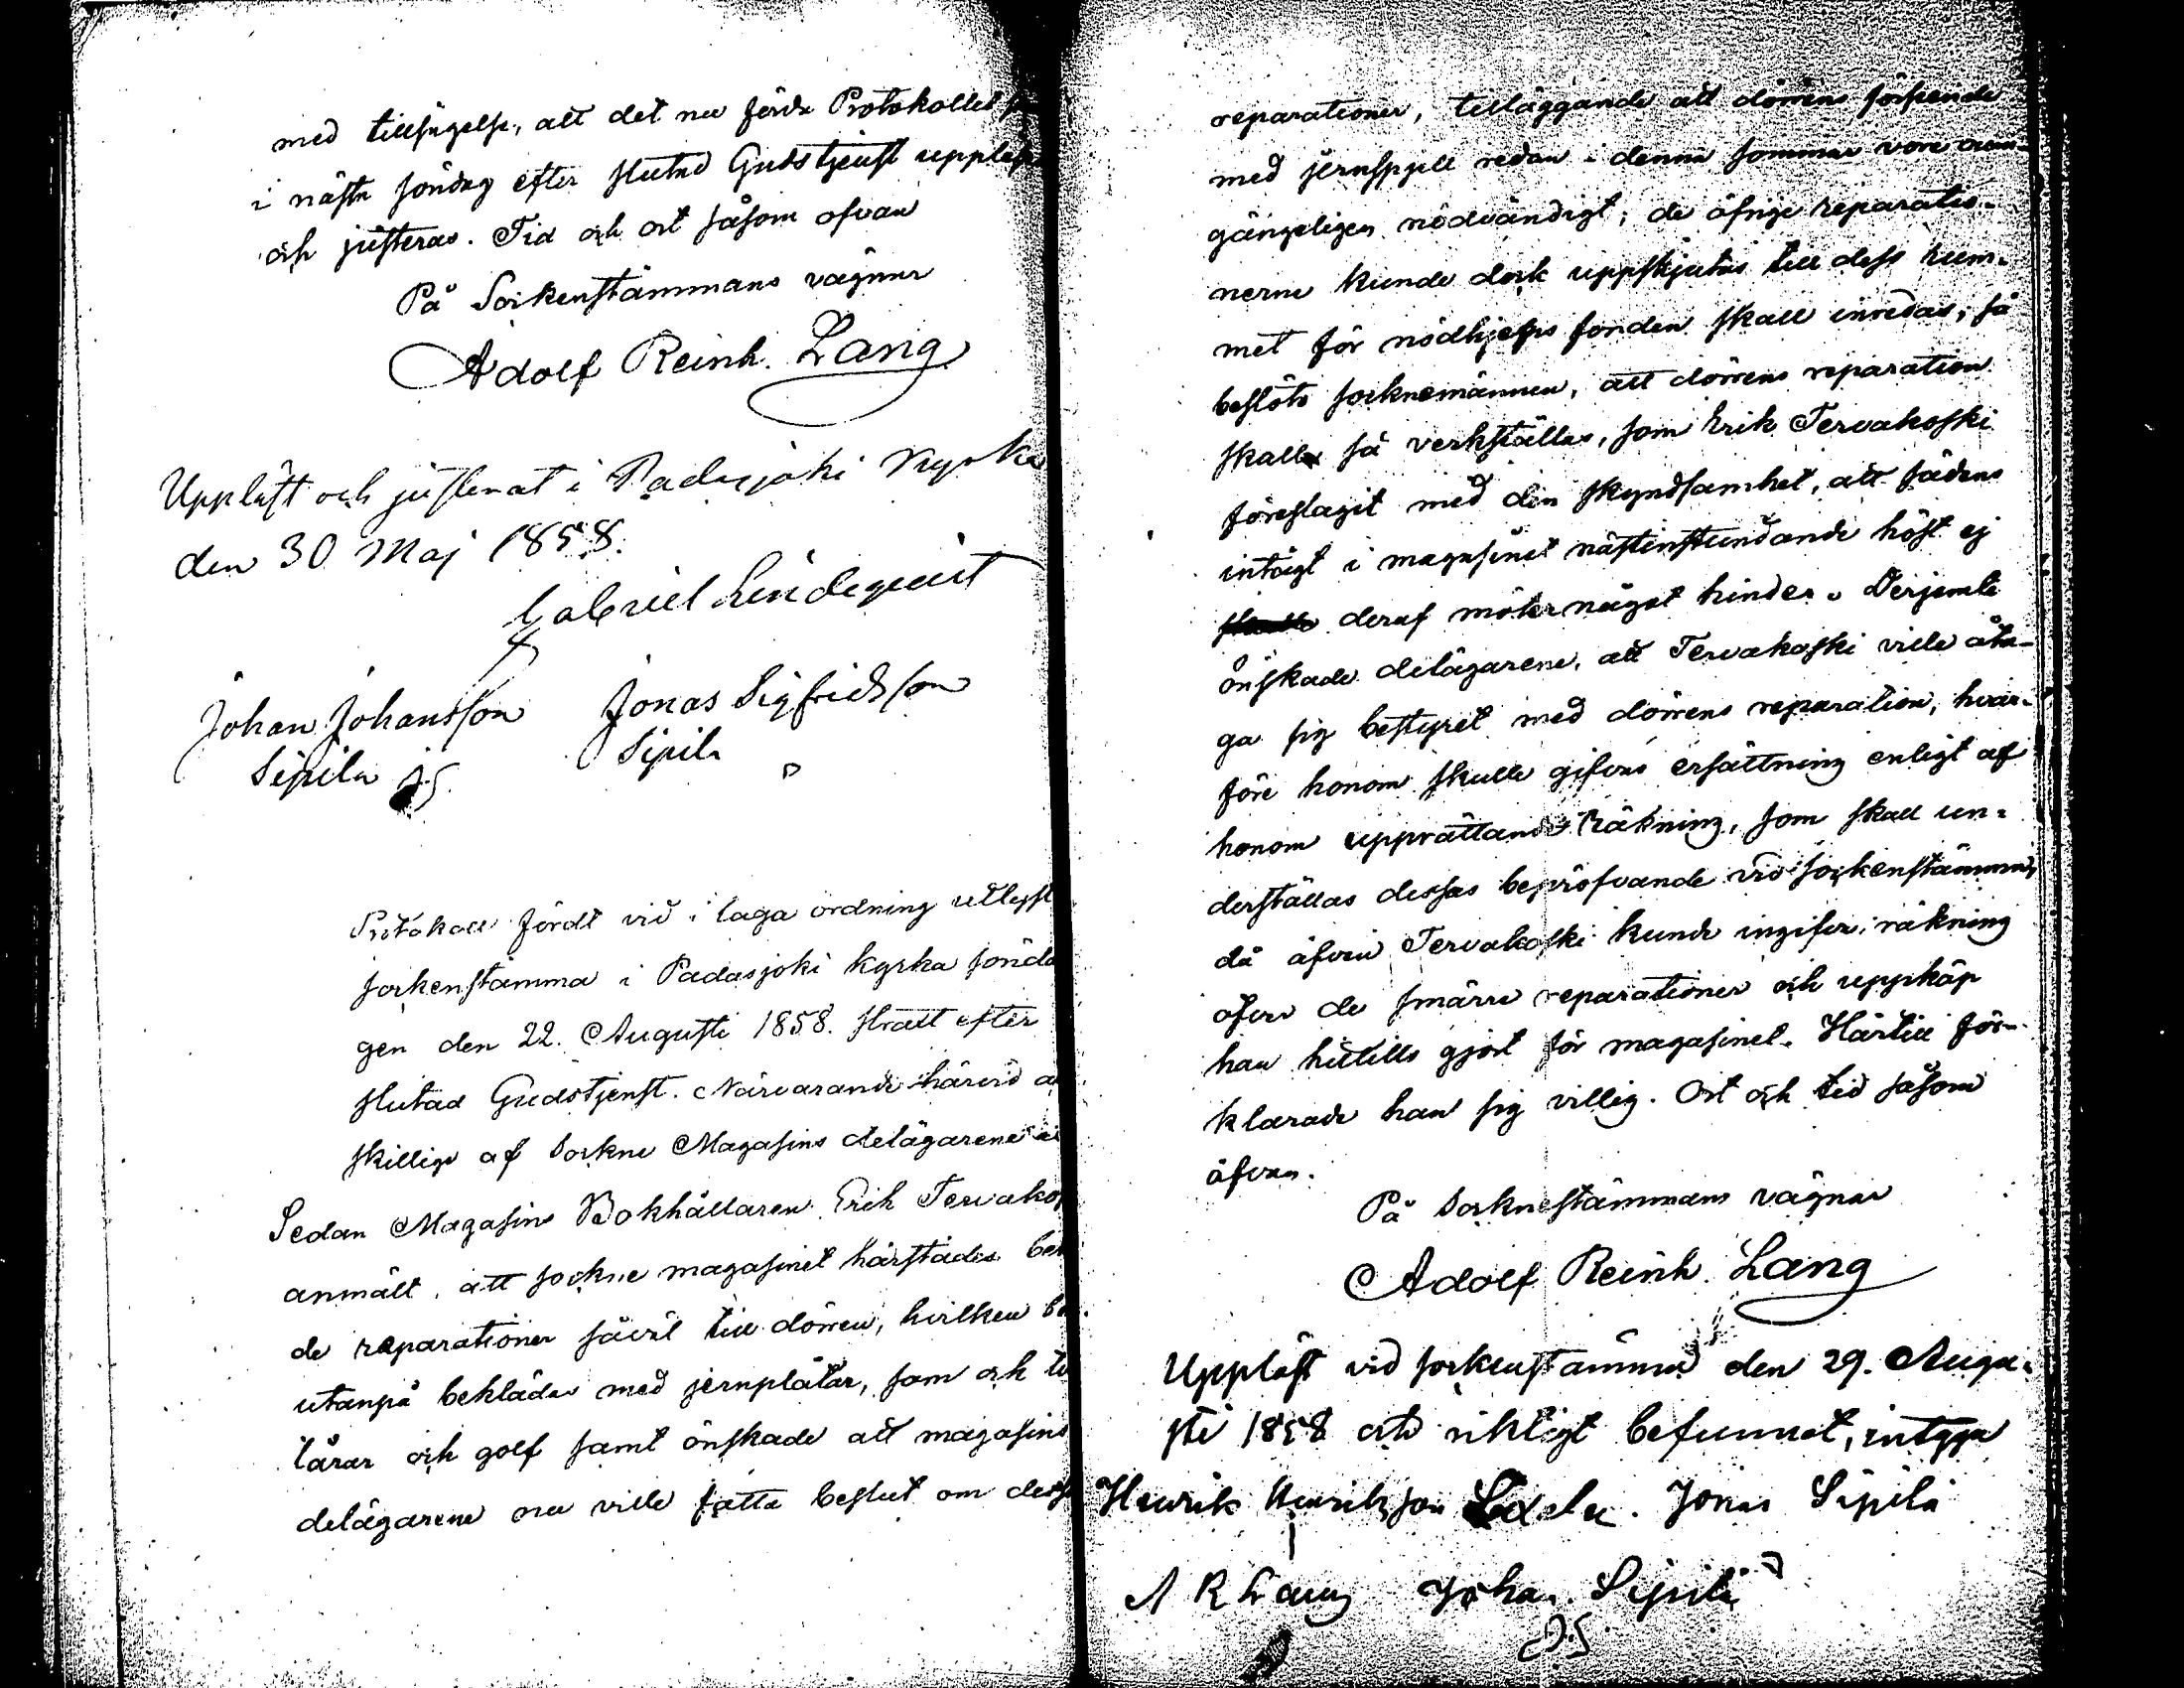 med tillsägelse, att det nu förda Protokollet
i nästa söndag efter slutad Gudstjenst uppläses
och justeras. Tid och ort såsom ofvan
På Sockenstämmans vägnar
Adolf Reinh. Lang
Uppläst och justerat i Padasjoki Kyrka
den 30 Maj 1858.
Gabriel Lindequist
Johan Johansson Jonas Sigfridsson
Sipila Sipila
Protokoll fördt vid i laga ordning utlyst
sockenstämma i Padasjoki kyrka sönda
gen den 22. Augusti 1858. strax efter
slutad Gudstjenst. Närvarande härvid
skillige af Sockne Magasins delägarene
Sedan Magasins Bokhållaren Erik Tervako
anmält, att sockne magasinet härstädes be
de reparationer såväl till dörren, hvilken b
utanpå beklädas med jernplåtar, som och
lårar och golf samt önskade att magasins
delägarene nu ville fatta beslut om dess
reparationer, tilläggande att dörrens förseende
med jernspjell redan i denna sommar vore oum-
gängeligen nödvändigt; de öfrige reparatio-
nerne kunde dock uppskjutas till dess rum-
met för nödhjelps fonden skall inredas; så
beslöto socknemännen, att dörrens reparation
skall så verkställas, som Erik Tervakoski
föreslagit med den skyndsamhet, att sädens
intägt i magasinet nästinstundande höst ej
deraf möter något hinder. Derjemte
önskade delägarene, att Tervakoski ville åta-
ga sig bestyret med dörrens reparation, hvar-
före honom skulle gifvas ersättning enligt af
honom upprättande Räkning, som skall un-
derställas dessas bepröfvande vid sockenstämma,
då äfven Tervakoski kunde ingifva räkning
öfver de smärre reparationer och uppköp
han hittills gjort för magasinet. Härtill för-
klarade han sig villig. Ort och tid såsom
ofvan.
På Socknestämmans vägnar
Adolf Reinh. Lang
Uppläst vid sockenstämma den 29. Augu-
sti 1858 och riktigt befunnet, intyga
Henrik Henriksson Jonas Sipilä
A R Lang Johan Sipilä